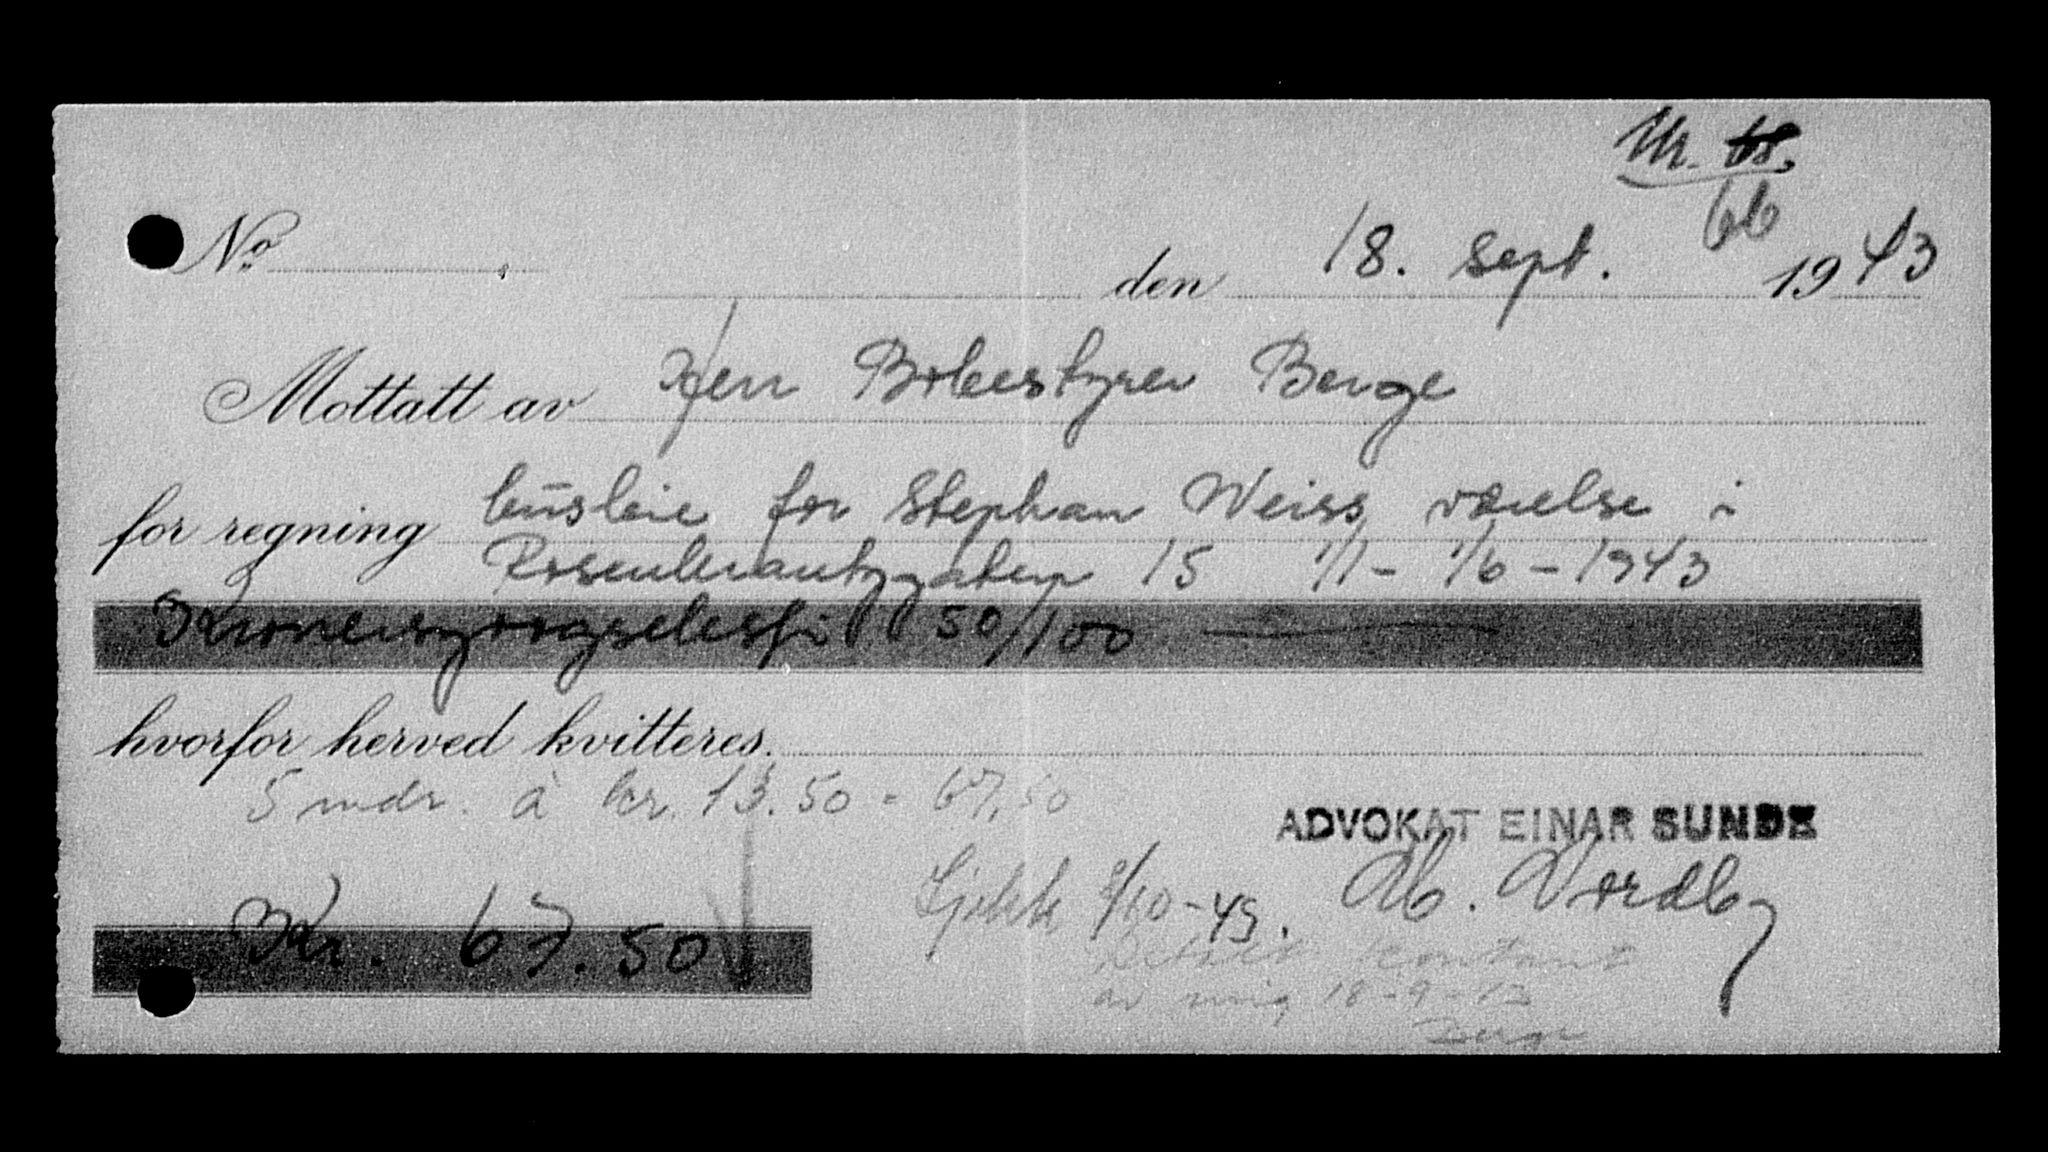 M. 18.
66
No
den 18. sept. 1943
Mottatt av Herr Bobestyrer Berge
for regning husleie for Stephan Weiss, værelse i
Rosenkrantzgaten 15 1/1 - 1/6 - 1943
50/100
hvorfor herved kvitteres.
5 mdr. à kr. 13.50 = 67,50
ADVOKAT EINAR SUNDE
Sjekk /10-43. Nordby
Kr. 67.50
Betalt kontant
av mig 18-9-43
Berge